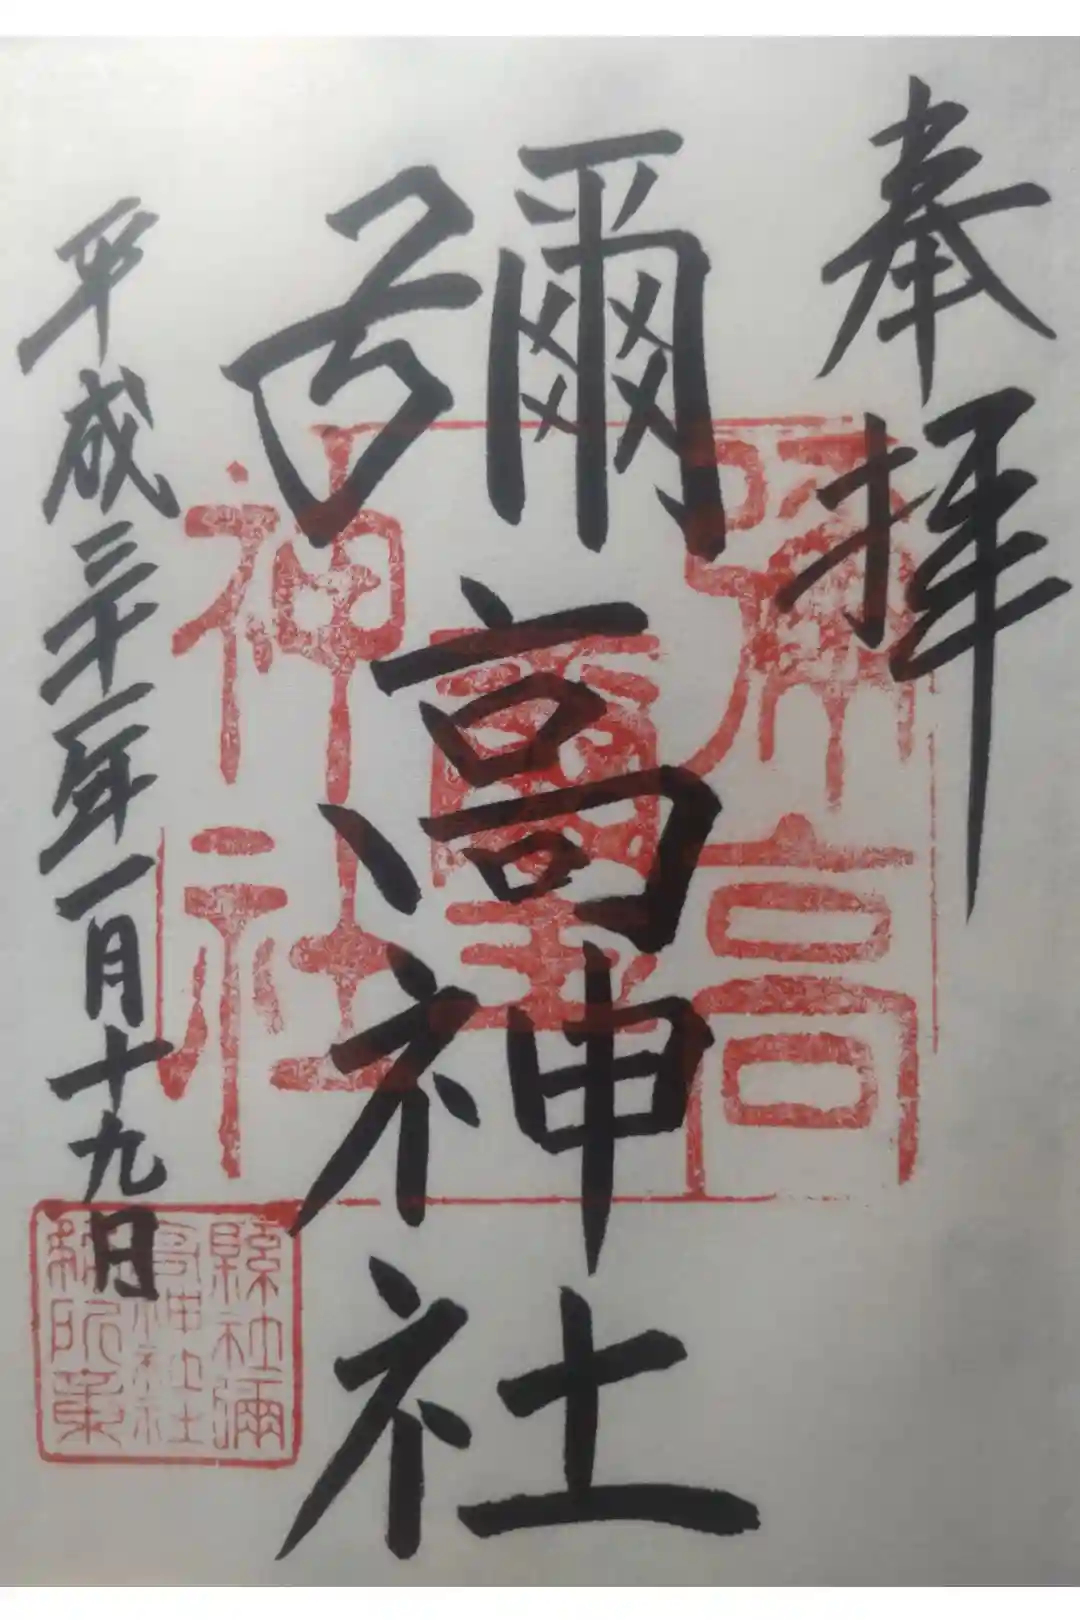 奉拝
彌高神社
平成三十一年一月十九日
彌高
神社
璽
縣社彌
高神社